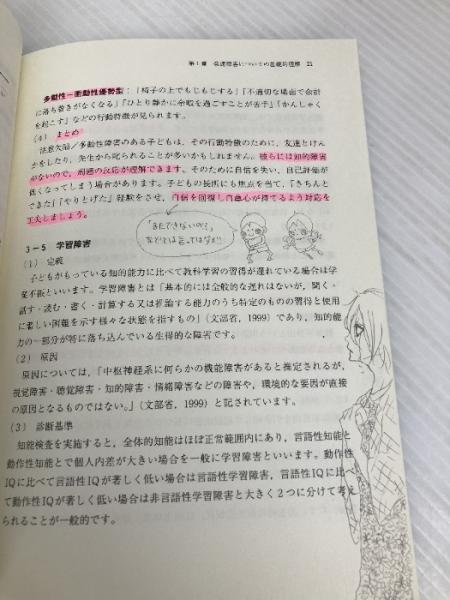 第1章 発達障害についての基礎的理解 21
多動性－衝動性優勢型：「椅子の上でもじもじする」「不適切な場面で余計
に落ち着きがなくなる」「ひとり静かに余暇を過ごすことが苦手」「かんしゃく
を起こす」などの行動特徴が見られます。
(4) まとめ
注意欠陥／多動性障害のある子どもは、その行動特徴のために、友達とけん
かをしたり、先生から叱られることが多いかもしれません。彼らには知的障害
がないので、周囲の反応が理解できます。そのために自信を失い、自己評価が
低くなってしまう場合があります。子どもの長所にも焦点を当て、「きちんと
できた」「やりとげた」経験をさせ、自信を回復し自尊心が持てるよう対応を
工夫しましょう。
「またできないの?」
などとは言ってはダメ!!
3－5 学習障害
(1) 定義
子どもがもっている知的能力に比べて教科学習の習得が遅れている場合は学
業不振といいます。学習障害とは「基本的には全般的な遅れはないが、聞く・
話す・読む・書く・計算する又は推論する能力のうち特定のものの習得と使用
に著しい困難を示す様々な状態を指すもの」（文部省，1999）であり、知的能
力の一部分が特に落ち込んでいる生得的な障害です。
(2) 原因
原因については、「中枢神経系に何らかの機能障害があると推定されるが、
視覚障害・聴覚障害・知的障害・情緒障害などの障害や、環境的な要因が直接
の原因となるものではない。」（文部省，1999）と記されています。
(3) 診断基準
知能検査を実施すると、全体的知能はほぼ正常範囲内にあり、言語性知能と
動作性知能とで個人内差が大きい場合を一般に学習障害といいます。動作性
IQに比べて言語性IQが著しく低い場合は言語性学習障害、言語性IQに比べ
て動作性IQが著しく低い場合は非言語性学習障害と大きく2つに分けて考え
られることが一般的です。